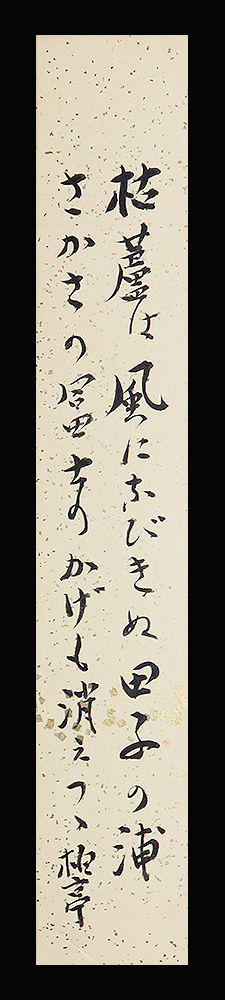 枯蘆は風になびきぬ田子の浦
さかさの冨士のかげも消えつゝ